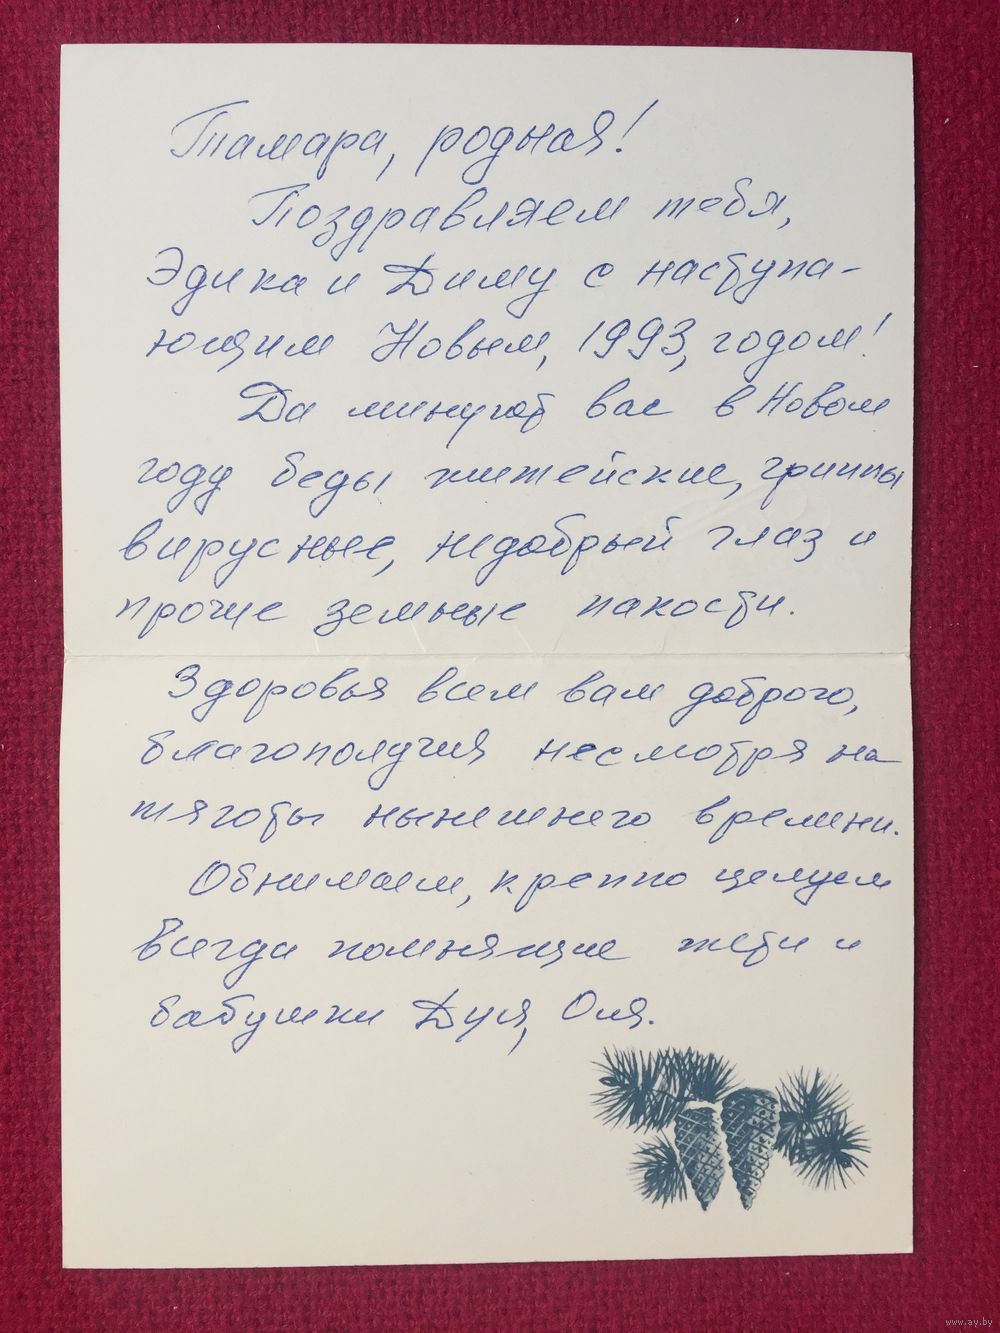 Тамара, родная!
Поздравляем тебя,
Эдика и Диму с наступа-
ющим Новым, 1993, годом!
Да минуют вас в Новом
году беды житейские, гриппы
вирусные, недобрый глаз и
прочие земные пакости.
Здоровья всем вам доброго,
благополучия несмотря на
тяготы нынешнего времени.
Обнимаем, крепко целуем
всегда помнящие тети и
бабушки Дуся, Оля.
www.ay.by